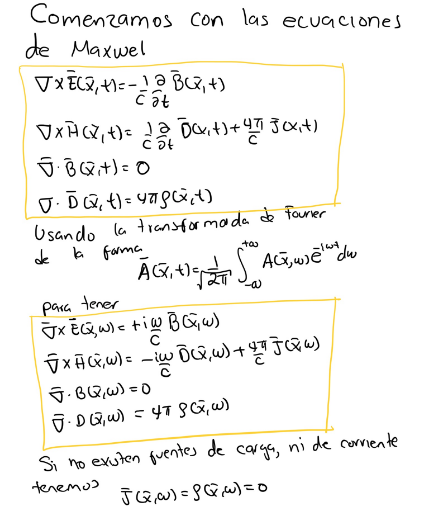 Comenzamos con las ecuaciones
de Maxwel
∇×Ē(x̄,t)=-1/c ∂/∂t B̄(x̄,t)
∇×H̄(x̄,t)= 1/c ∂/∂t D̄(x,t)+4π/c J̄(x,t)
∇̄·B̄(x̄,t)=0
∇·D̄(x̄,t)=4πρ(x̄,t)
Usando la transformada de Fourier
de la forma
Ā(x̄,t)=1/√2π ∫_{-∞}^{+∞} A(x̄,ω)e^{-iωt}dω
para tener
∇̄×Ē(x̄,ω)=+iω/c B̄(x̄,ω)
∇̄×H̄(x̄,ω)= -iω/c D̄(x̄,ω)+4π/c J̄(x̄,ω)
∇̄·B(x̄,ω)=0
∇̄·D(x̄,ω) = 4π ρ(x̄,ω)
Si no existen fuentes de carga, ni de corriente
tenemos J̄(x̄,ω)=ρ(x̄,ω)=0